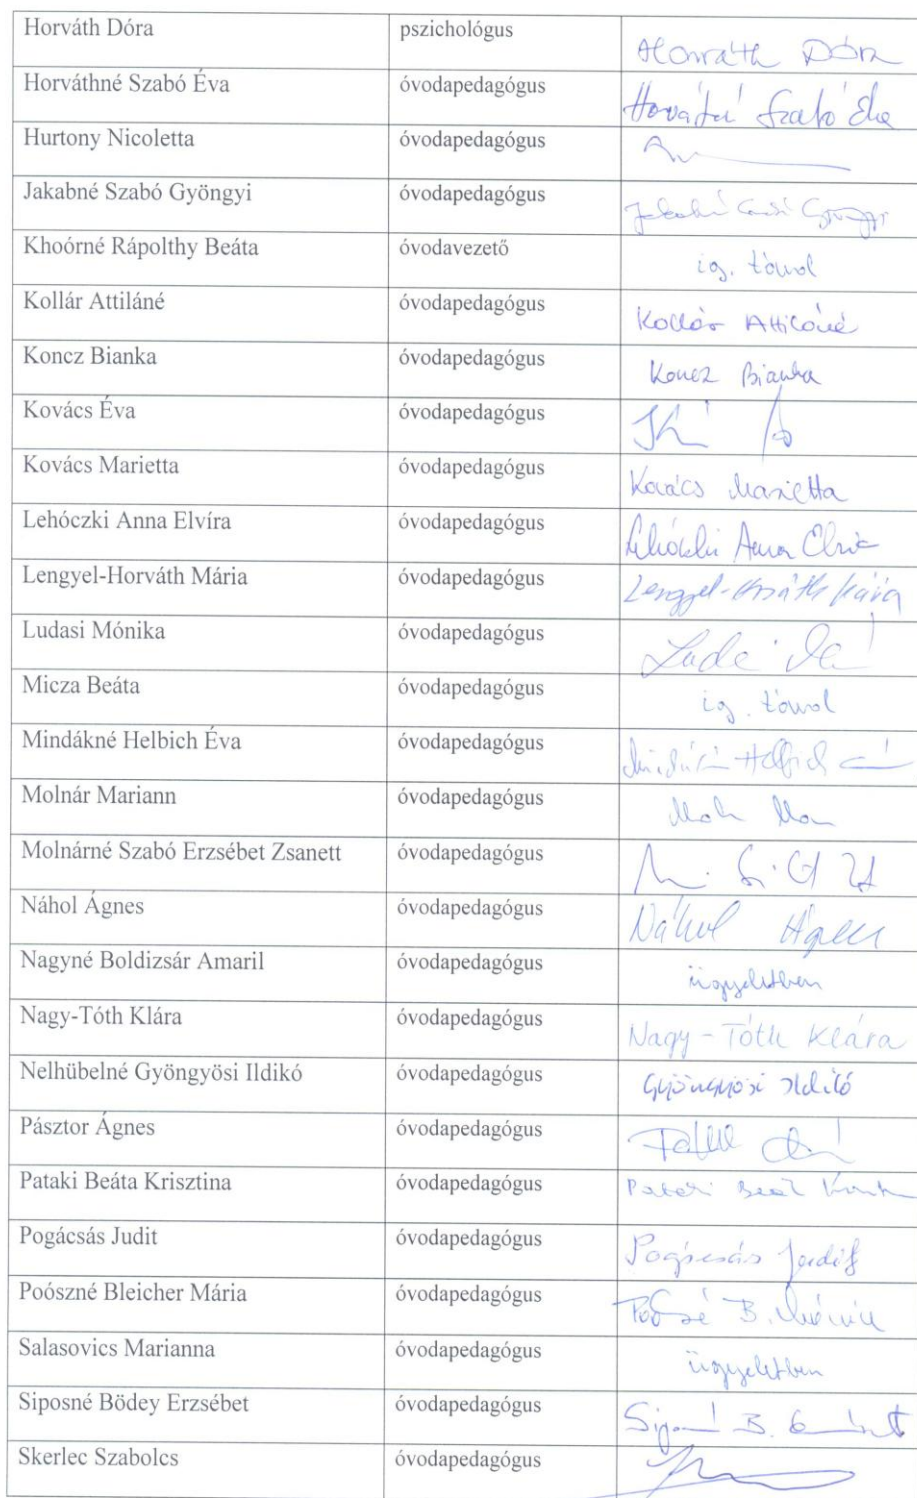 Horváth Dóra pszichológus Horváth Dóra
Horváthné Szabó Éva óvodapedagógus Horváthné Szabó Éva
Hurtony Nicoletta óvodapedagógus
Jakabné Szabó Gyöngyi óvodapedagógus Jakabné Szabó Gyöngyi
Khoórné Rápolthy Beáta óvodavezető ig. távol
Kollár Attiláné óvodapedagógus Kollár Attiláné
Koncz Bianka óvodapedagógus Koncz Bianka
Kovács Éva óvodapedagógus
Kovács Marietta óvodapedagógus Kovács Marietta
Lehóczki Anna Elvíra óvodapedagógus Lehóczki Anna Elvíra
Lengyel-Horváth Mária óvodapedagógus Lengyel-Horváth Mária
Ludasi Mónika óvodapedagógus
Micza Beáta óvodapedagógus ig. távol
Mindákné Helbich Éva óvodapedagógus
Molnár Mariann óvodapedagógus
Molnárné Szabó Erzsébet Zsanett óvodapedagógus
Náhol Ágnes óvodapedagógus Náhol Ágnes
Nagyné Boldizsár Amaril óvodapedagógus ügyeletben
Nagy-Tóth Klára óvodapedagógus Nagy-Tóth Klára
Nelhübelné Gyöngyösi Ildikó óvodapedagógus Gyöngyösi Ildikó
Pásztor Ágnes óvodapedagógus
Pataki Beáta Krisztina óvodapedagógus Pataki Beát
Pogácsás Judit óvodapedagógus Pogácsás Judit
Poószné Bleicher Mária óvodapedagógus Poószné B. Mária
Salasovics Marianna óvodapedagógus ügyeletben
Siposné Bödey Erzsébet óvodapedagógus Siposné B.
Skerlec Szabolcs óvodapedagógus